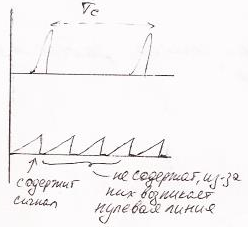 Tc
содержит
сигнал
не содержат, из-за
них возникает
нулевая линия